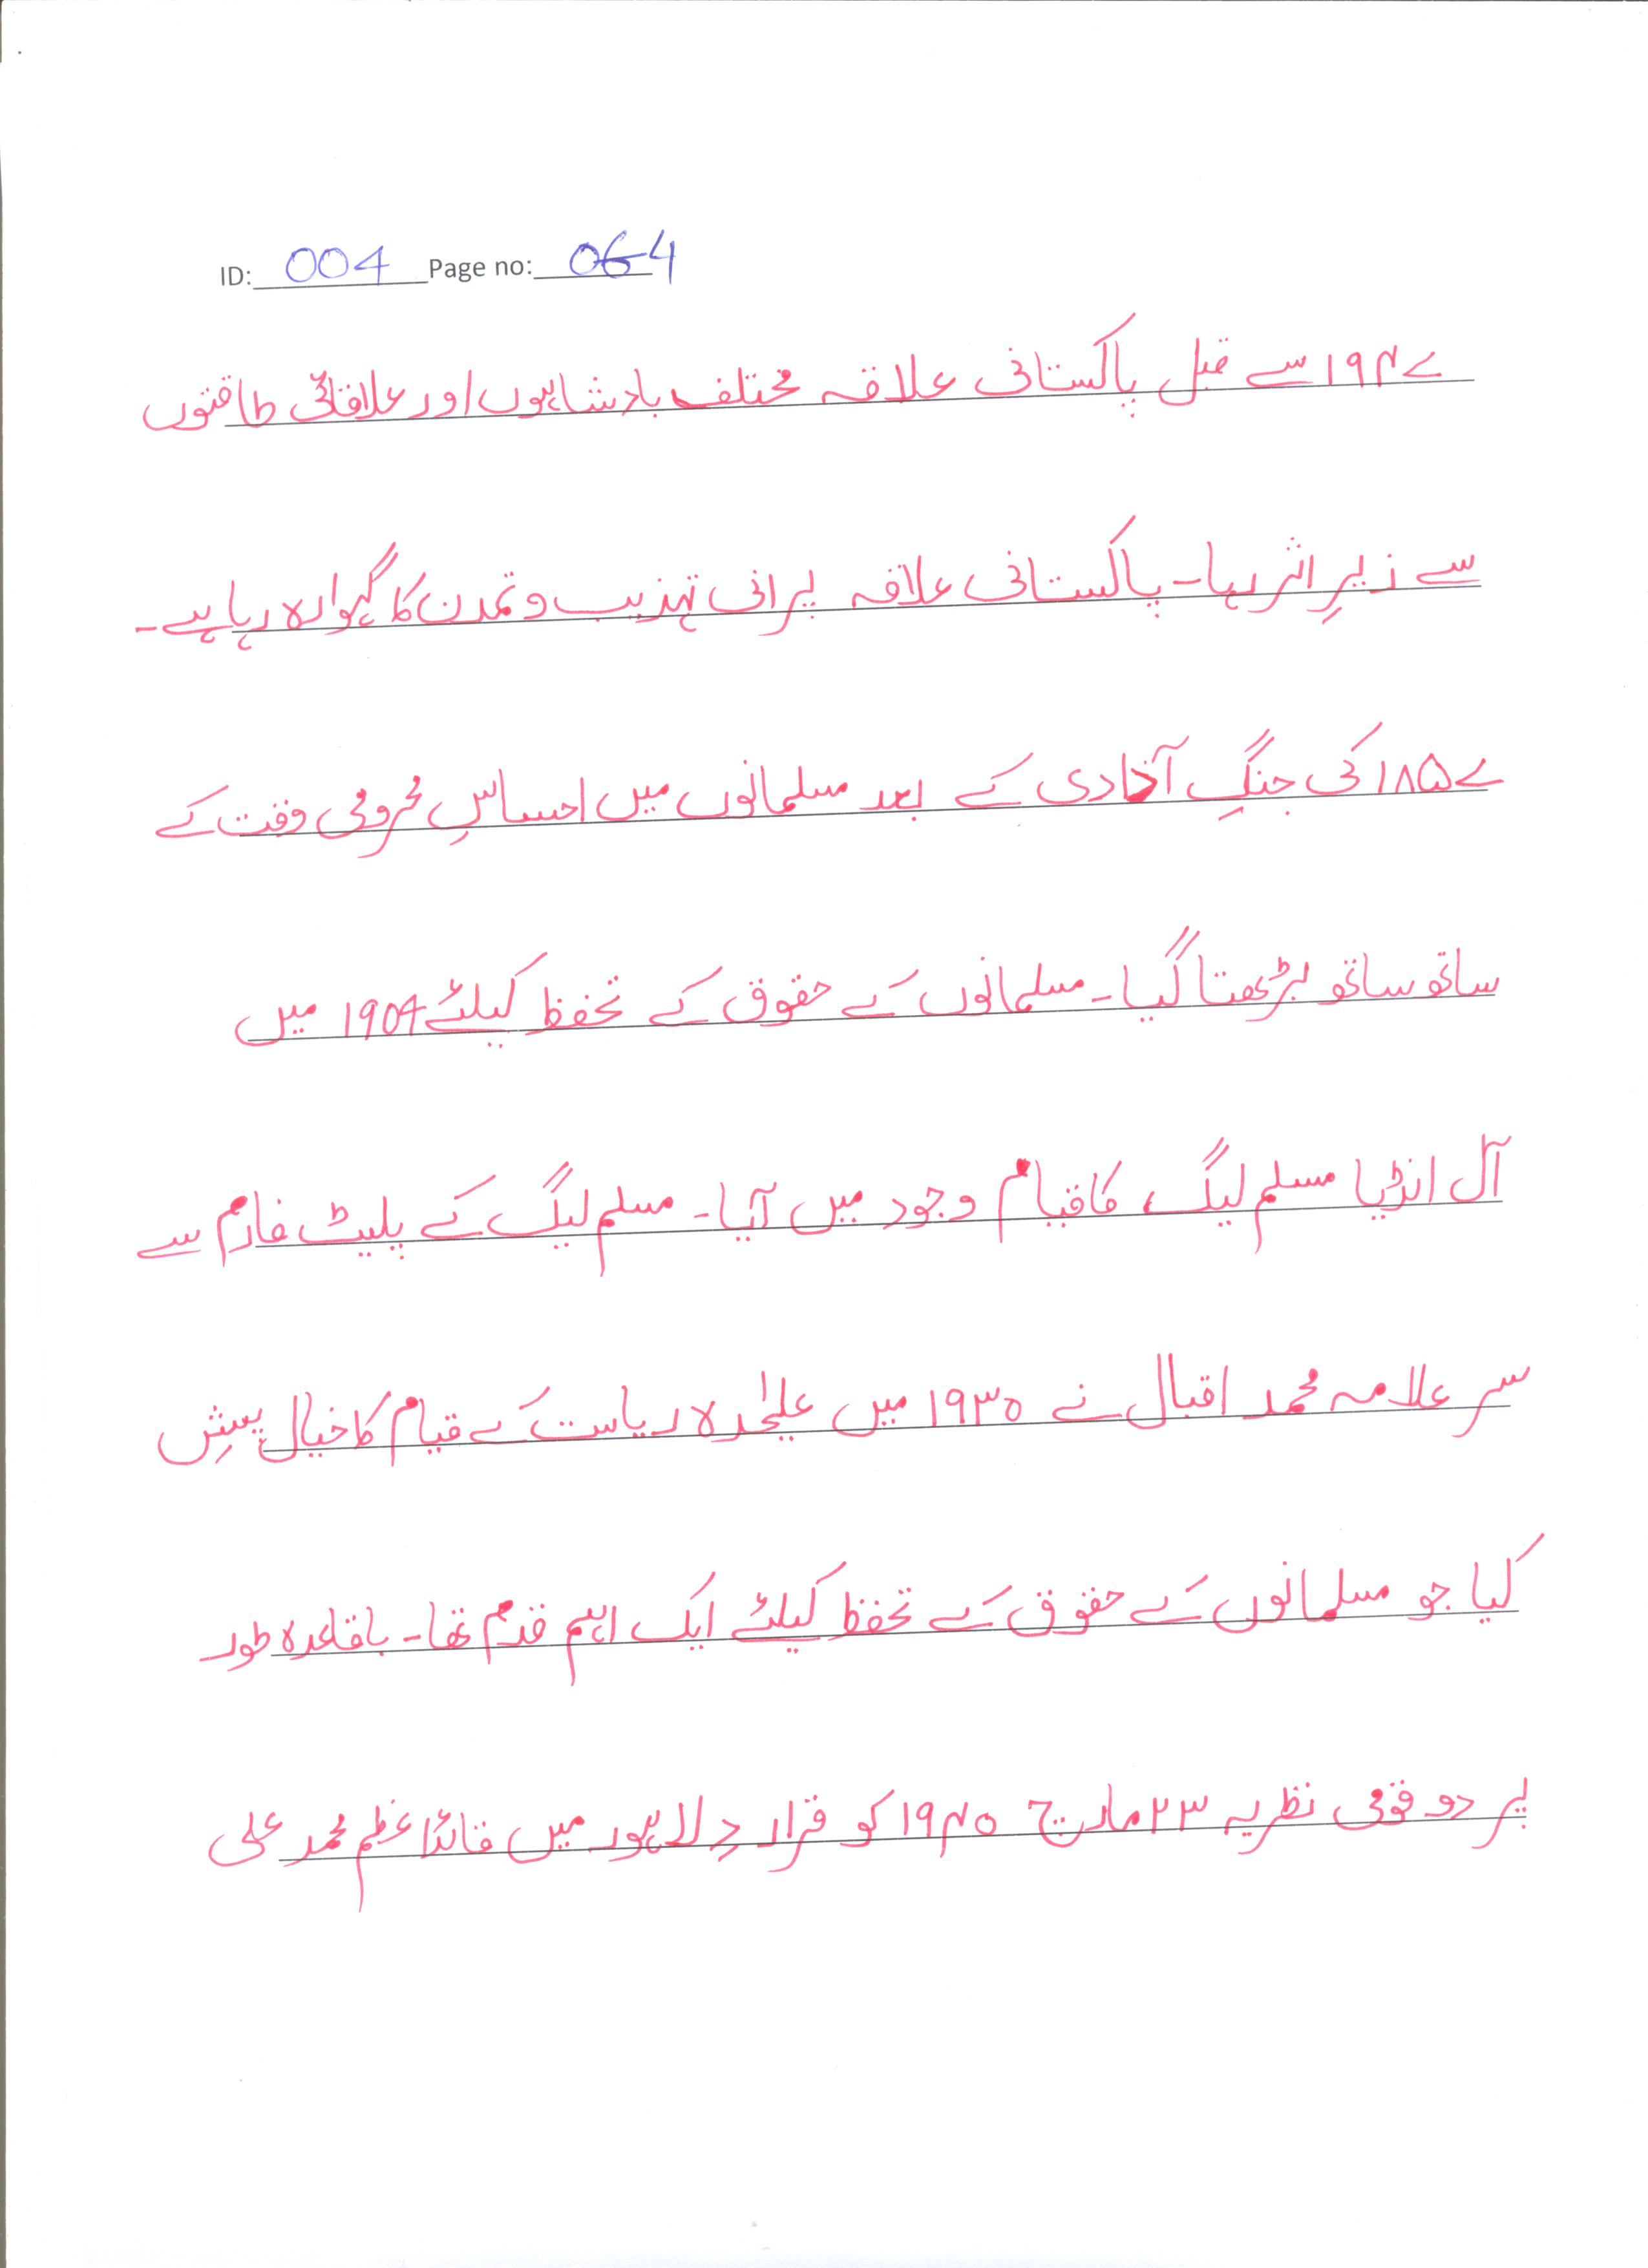 ID: 004 Page no: 064
۱۹۴۷ سے قبل پاکستانی علاقہ مختلف بادشاہوں اور علاقائی طاقتوں
سے زیرِ اثر رہا۔ پاکستانی علاقہ پرانی تہذیب و تمدن کا گہوارہ رہا ہے۔
۱۸۵۷ کی جنگِ آذادی کے بعد مسلمانوں میں احساسِ محرومی وقت کے
ساتھ ساتھ بڑھتا گیا۔ مسلمانوں کے حقوق کے تحفظ کیلئے ۱۹۰۶ میں
آل انڈیا مسلم لیگ کا قیام وجود میں آیا۔ مسلم لیگ کے پلیٹ فارم سے
سر علامہ محمد اقبال نے ۱۹۳۰ میں علیحٰدہ ریاست کے قیام کا خیال پیشِ
کیا جو مسلمانوں کے حقوق کے تحفظ کیلئے ایک اہم قدم تھا۔ باقاعدہ طور
پر دو قومی نظریہ ۲۳ مارچ ۱۹۴۰ کو قرار دِ لاہور میں قائداعظم محمد علی